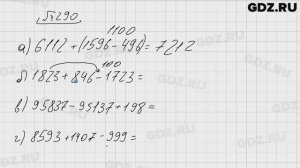 GDZ.RU
№290
1100
а) 6112 + (1596 - 496) = 7212
100
б) 1823 + 846 - 1723 =
в) 95837 - 95137 + 198 =
г) 8593 + 1407 - 999 =
GDZ.RU